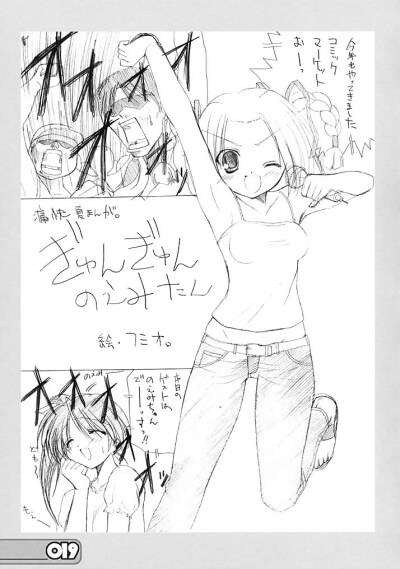 今年もやってきました
コミック
マーケット
おーっ
オオオオ
痛快夏まんが。
ぎゅんぎゅん
のえみたん
絵・フミオ。
本日の
ゲストは
のえみちゃん
でーーっすっ!!
のえみ
オオオオ
どもー
019